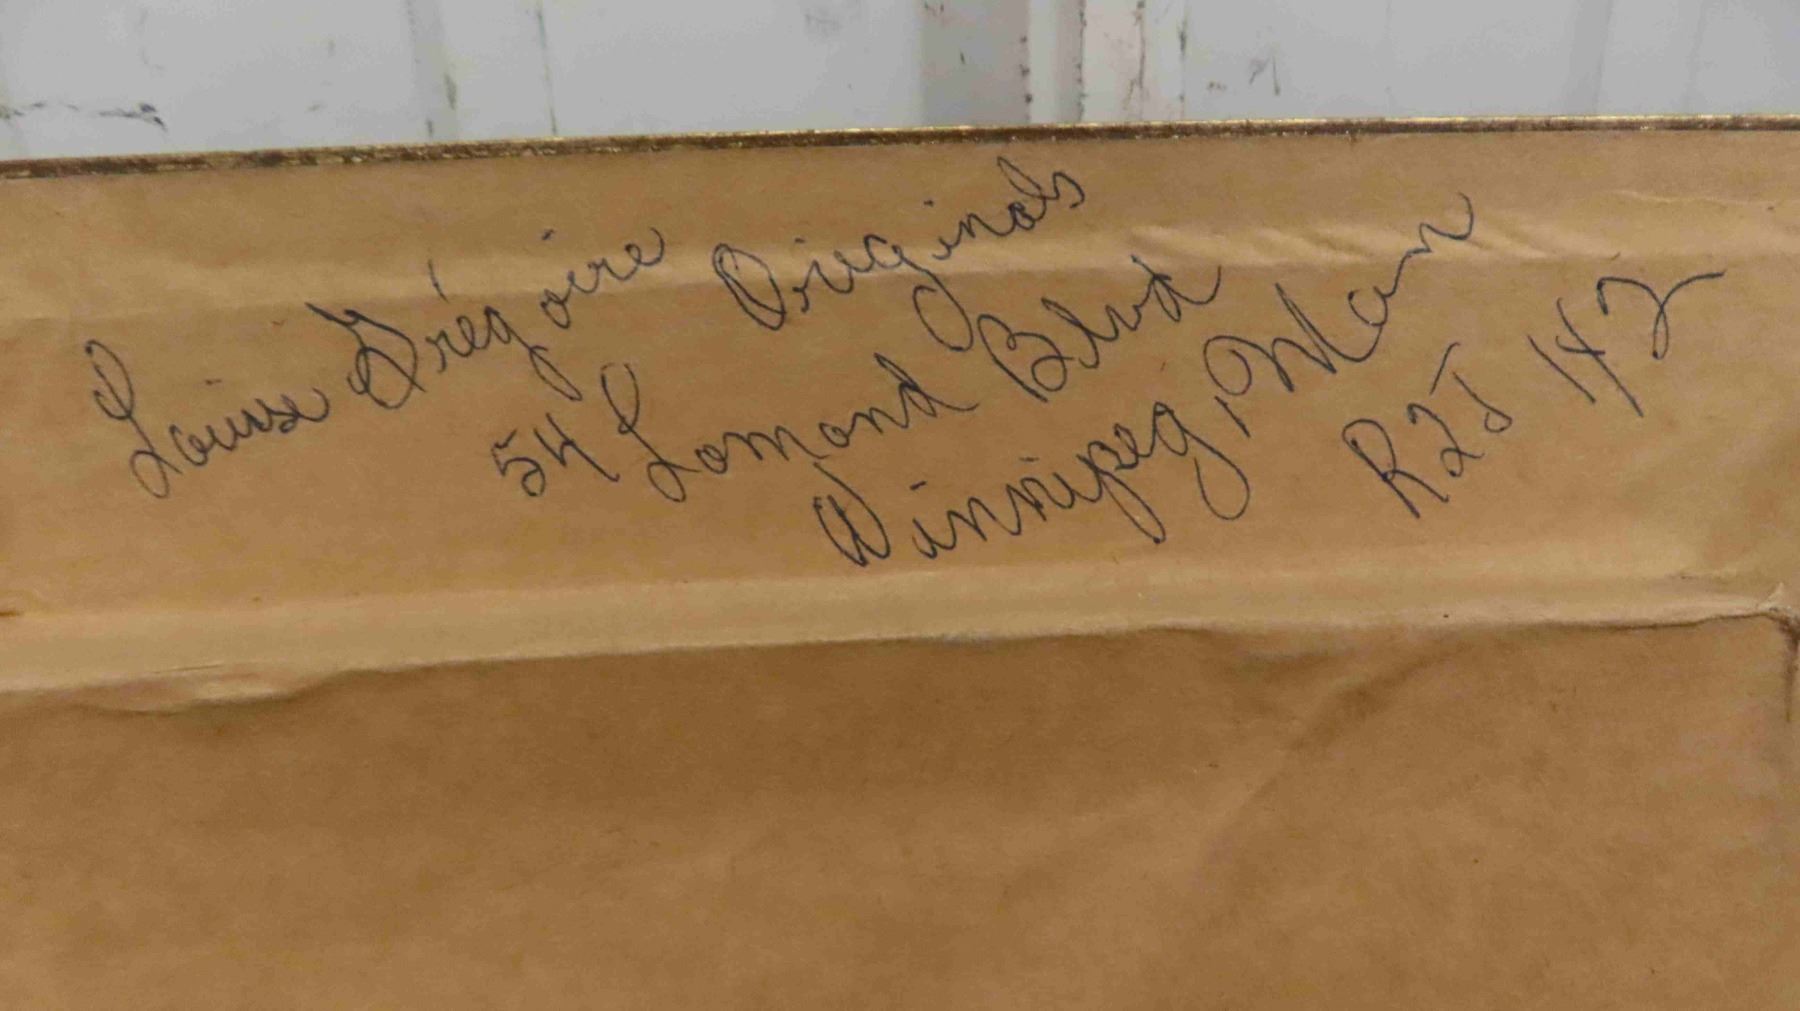 Louise Grégoire Originals
54 Lomond Blvd
Winnipeg, Man
R2J 1Y2